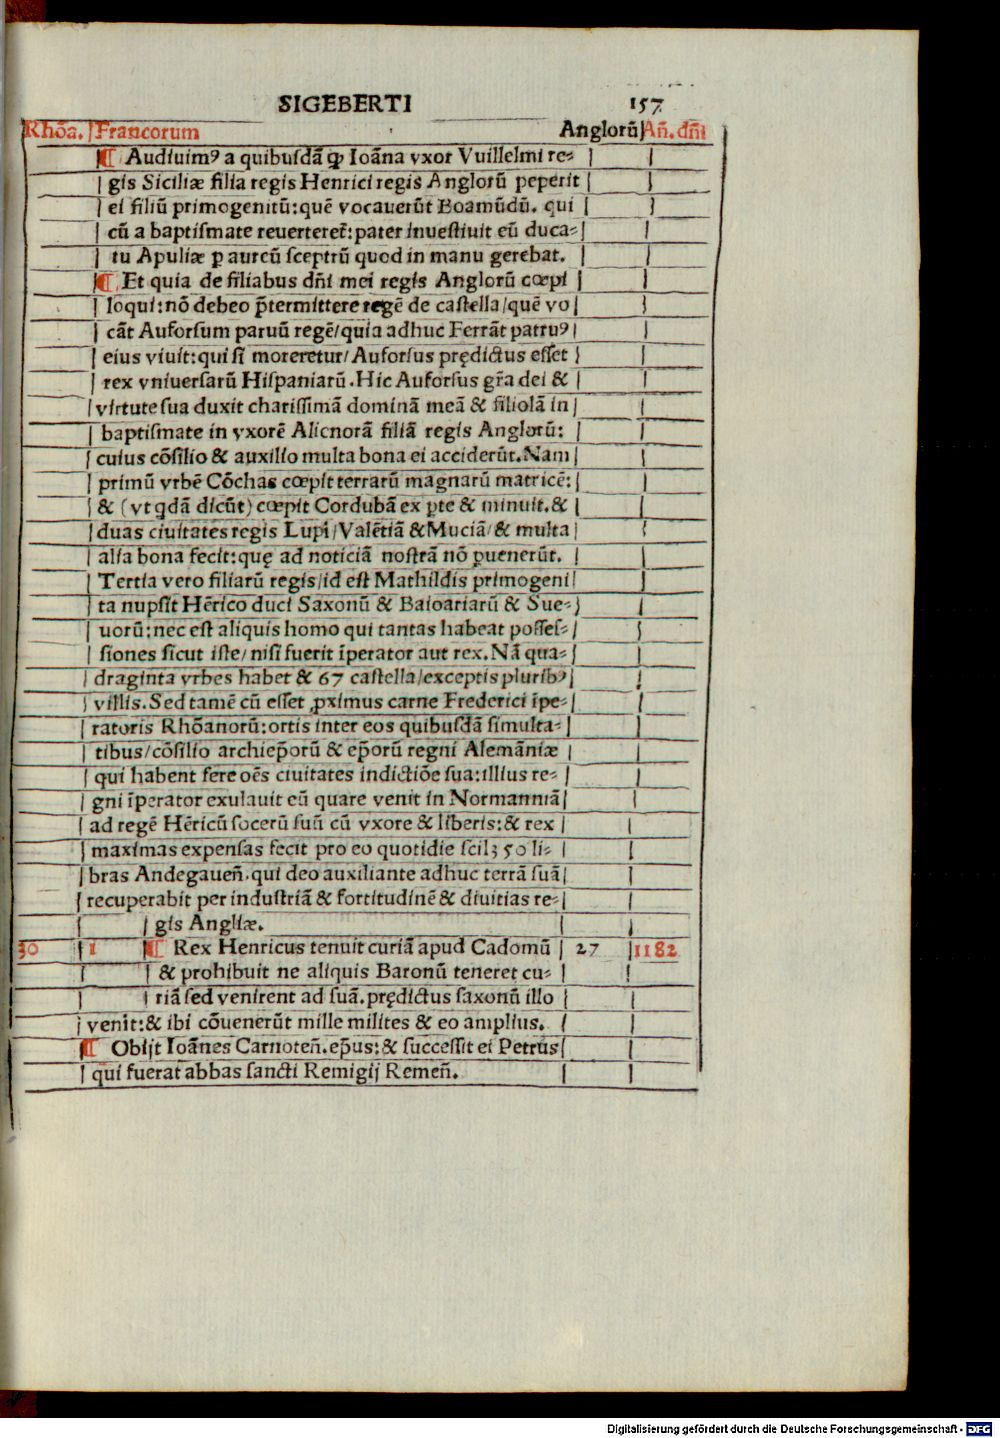 SIGEBERTI 157
Rhõa. Francorum Anglorũ Añ. dñi
¶ Audiuimꝰ a quibuſdã ꝙ Ioãna vxor Vuillelmi re-
gis Siciliæ filia regis Henrici regis Anglorũ peperit
ei filiũ primogenitũ: quẽ vocauerũt Boamũdũ. qui
cũ a baptiſmate reuerteret᷑: pater inueſtiuit eũ duca-
tu Apuliæ ꝑ aureũ ſceptrũ quod in manu gerebat.
¶ Et quia de filiabus dñi mei regis Anglorũ cœpi
loqui: nõ debeo p̃termittere regẽ de caſtella/quẽ vo
cãt Auforſum paruũ regẽ/quia adhuc Ferrãt patruꝰ
eius viuit: qui ſi moreretur/ Auforſus prędictus eſſet
rex vniuerſarũ Hiſpaniarũ. Hic Auforſus gr̃a dei &
virtute ſua duxit chariſſimã dominã meã & filiolã in
baptiſmate in vxorẽ Alienorã filiã regis Anglorũ:
cuius cõſilio & auxilio multa bona ei acciderũt. Nam
primũ vrbẽ Cõchas cœpit terrarũ magnarũ matricẽ:
& (vt qdã dicũt) cœpit Cordubã ex ꝑte & minuit. &
duas ciuitates regis Lupi/Valẽtiã & Muciã/& multa
alia bona fecit: quę ad noticiã noſtrã nõ ꝑuenerũt.
Tertia vero filiarũ regis/id eſt Mathildis primogeni
ta nupſit Hẽrico duci Saxonũ & Baioariarũ & Sue-
uorũ: nec eſt aliquis homo qui tantas habeat poſſeſ-
ſiones ſicut iſte/niſi fuerit ĩperator aut rex. Nã qua-
draginta vrbes habet & 67 caſtella/exceptis pluribꝰ
villis. Sed tamẽ cũ eſſet ꝓximus carne Frederici ĩpe-
ratoris Rhõanorũ: ortis inter eos quibuſdã ſimulta-
tibus/cõſilio archiep̃orũ & ep̃orũ regni Alemãniæ
qui habent fere oẽs ciuitates indictiõe ſua: illius re-
gni ĩperator exulauit eũ quare venit in Normanniã
ad regẽ Hẽricũ ſocerũ ſuũ cũ vxore & liberis: & rex
maximas expenſas fecit pro eo quotidie ſcilꝫ 50 li-
bras Andegaueñ. qui deo auxiliante adhuc terrã ſuã
recuperabit per induſtriã & fortitudinẽ & diuitias re-
gis Angliæ.
30 1 ¶ Rex Henricus tenuit curiã apud Cadomũ 27 1182
& prohibuit ne aliquis Baronũ teneret cu-
riã ſed venirent ad ſuã. prędictus ſaxonũ illo
venit: & ibi cõuenerũt mille milites & eo amplius.
¶ Obijt Ioãnes Carnoteñ. ep̃us: & ſucceſſit ei Petrus
qui fuerat abbas ſancti Remigij Remeñ.
Digitalisierung gefördert durch die Deutsche Forschungsgemeinschaft - DFG